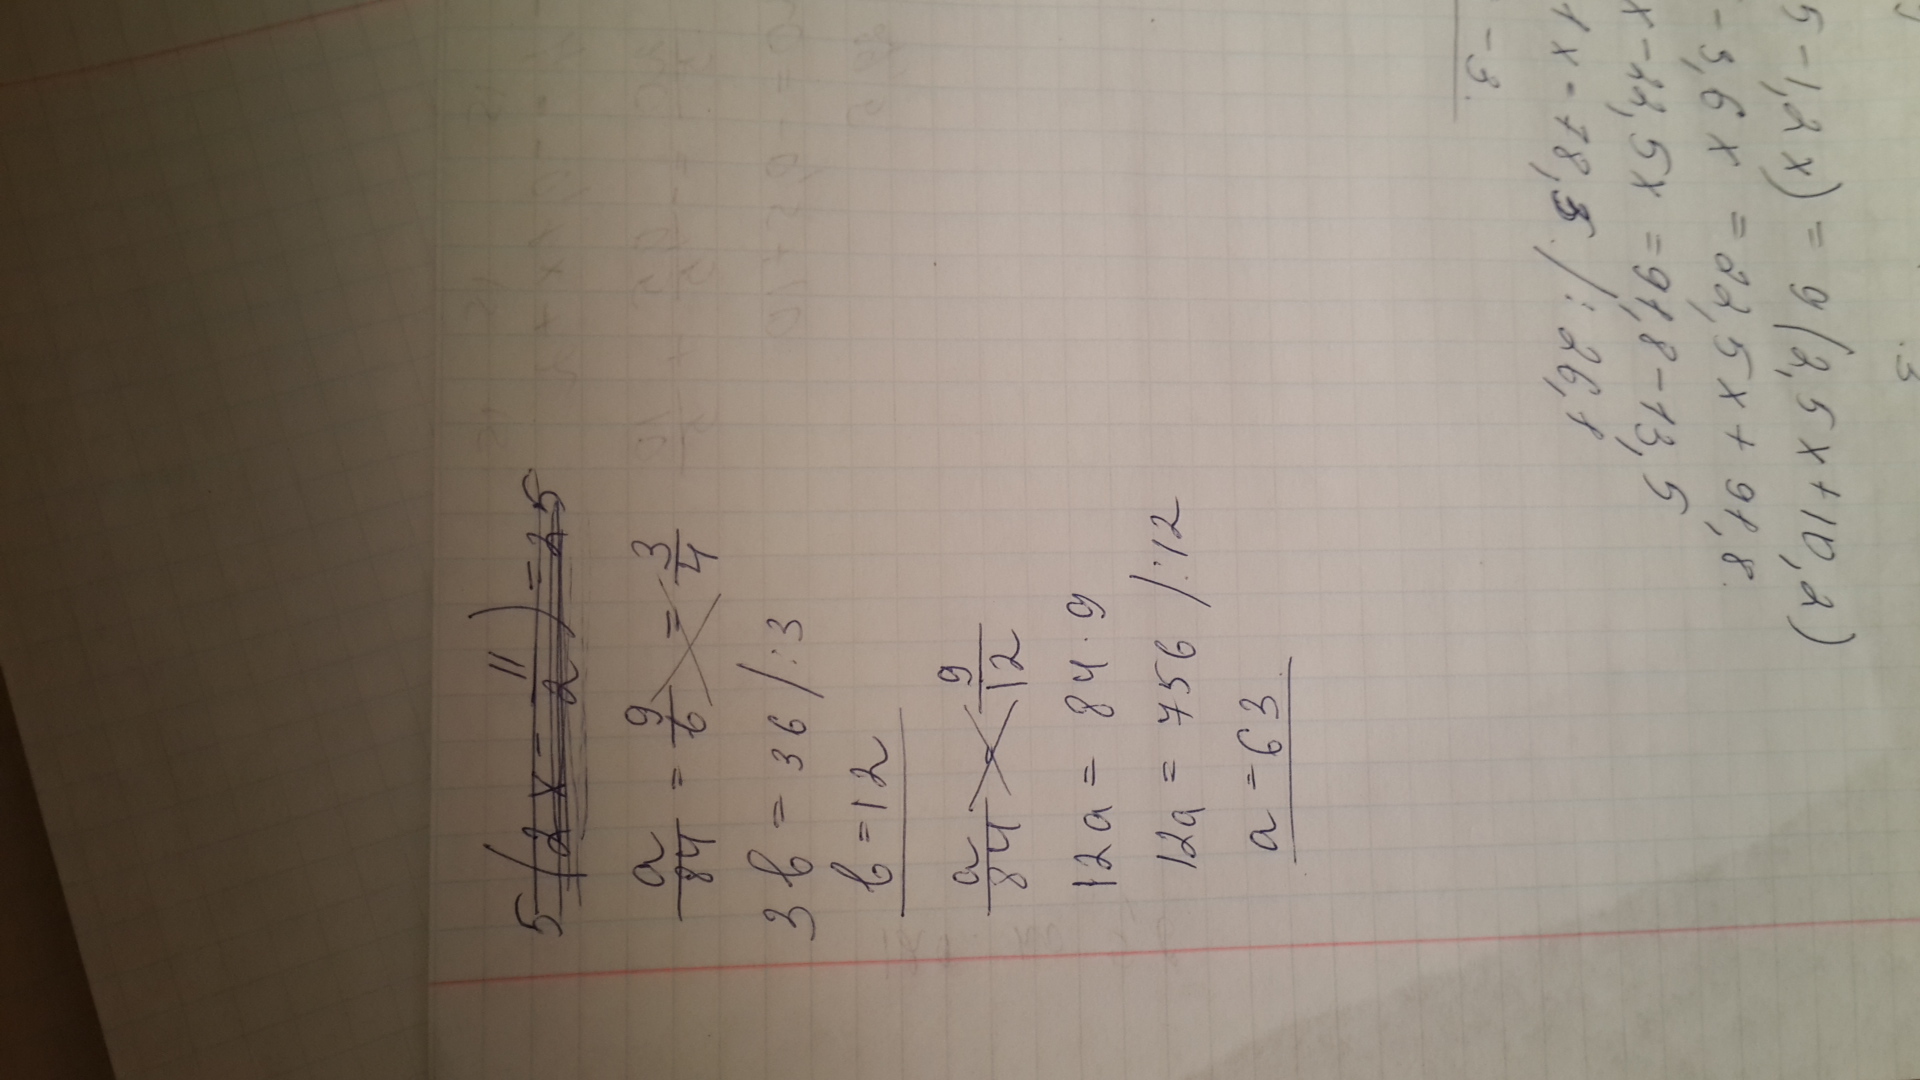 5(2x - 11/2) = 25
a/84 = 9/b = 3/4
3b = 36 /:3
b = 12
a/84 = 9/12
12a = 84 · 9
12a = 756 /:12
a = 63
5 - 1,2x) = 9(2,5x + 10,2)
- 3,6x = 22,5x + 91,8.
x - 22,5x = 91,8 - 13,5
1x = 78,3 /: 26,1
-3.